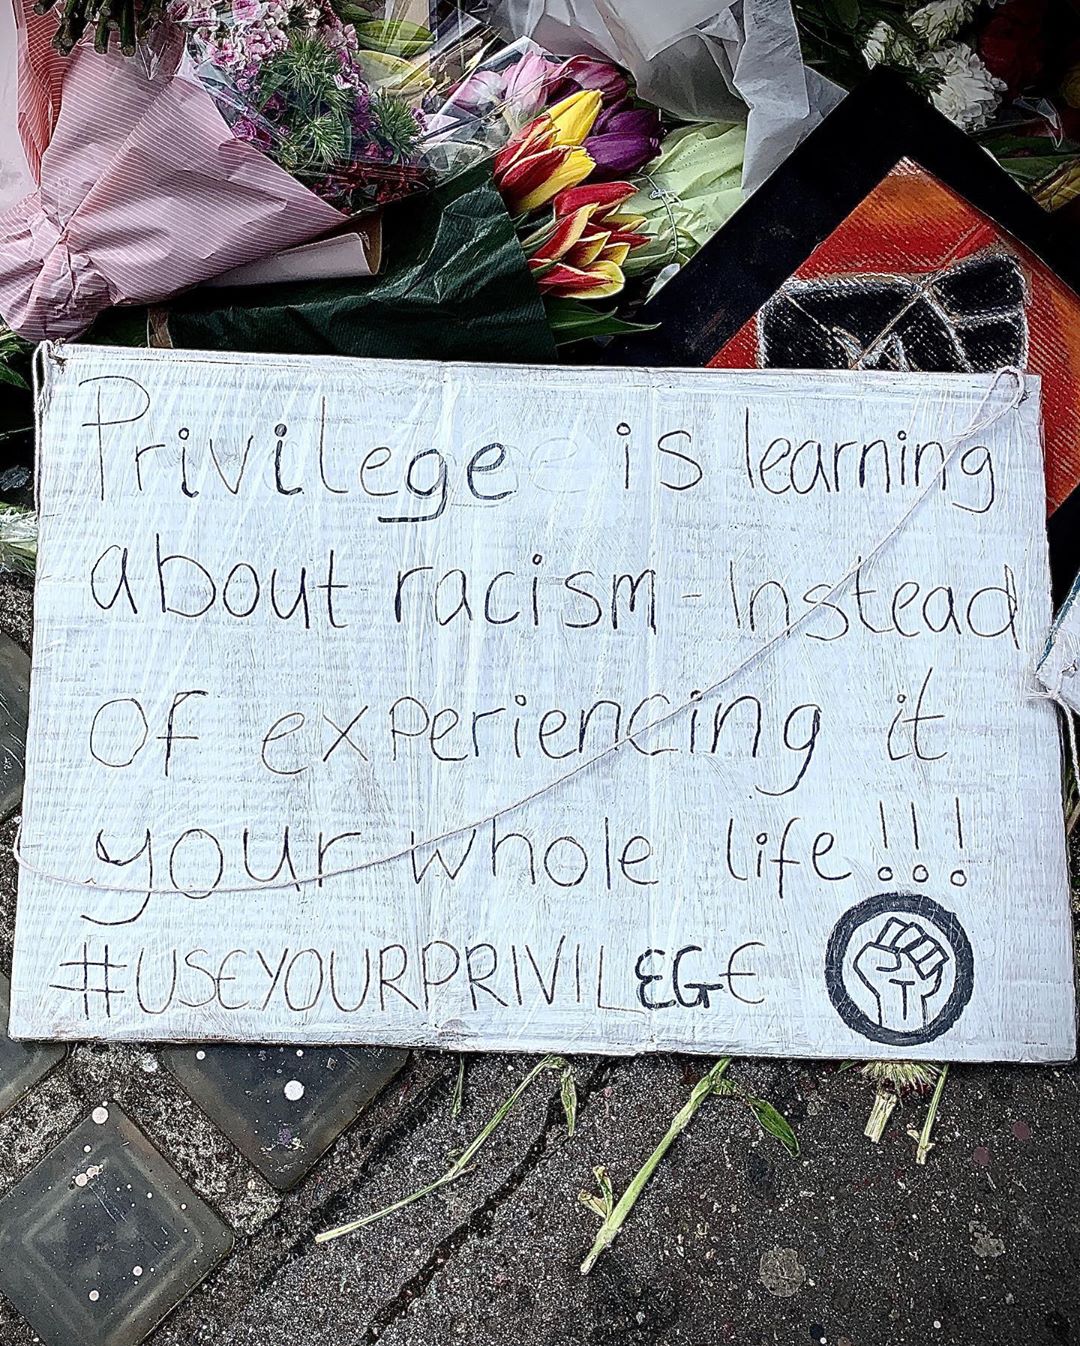 Privilege is learning
about racism - Instead
of experiencing it
your whole life !!!
#USEYOURPRIVILEGE